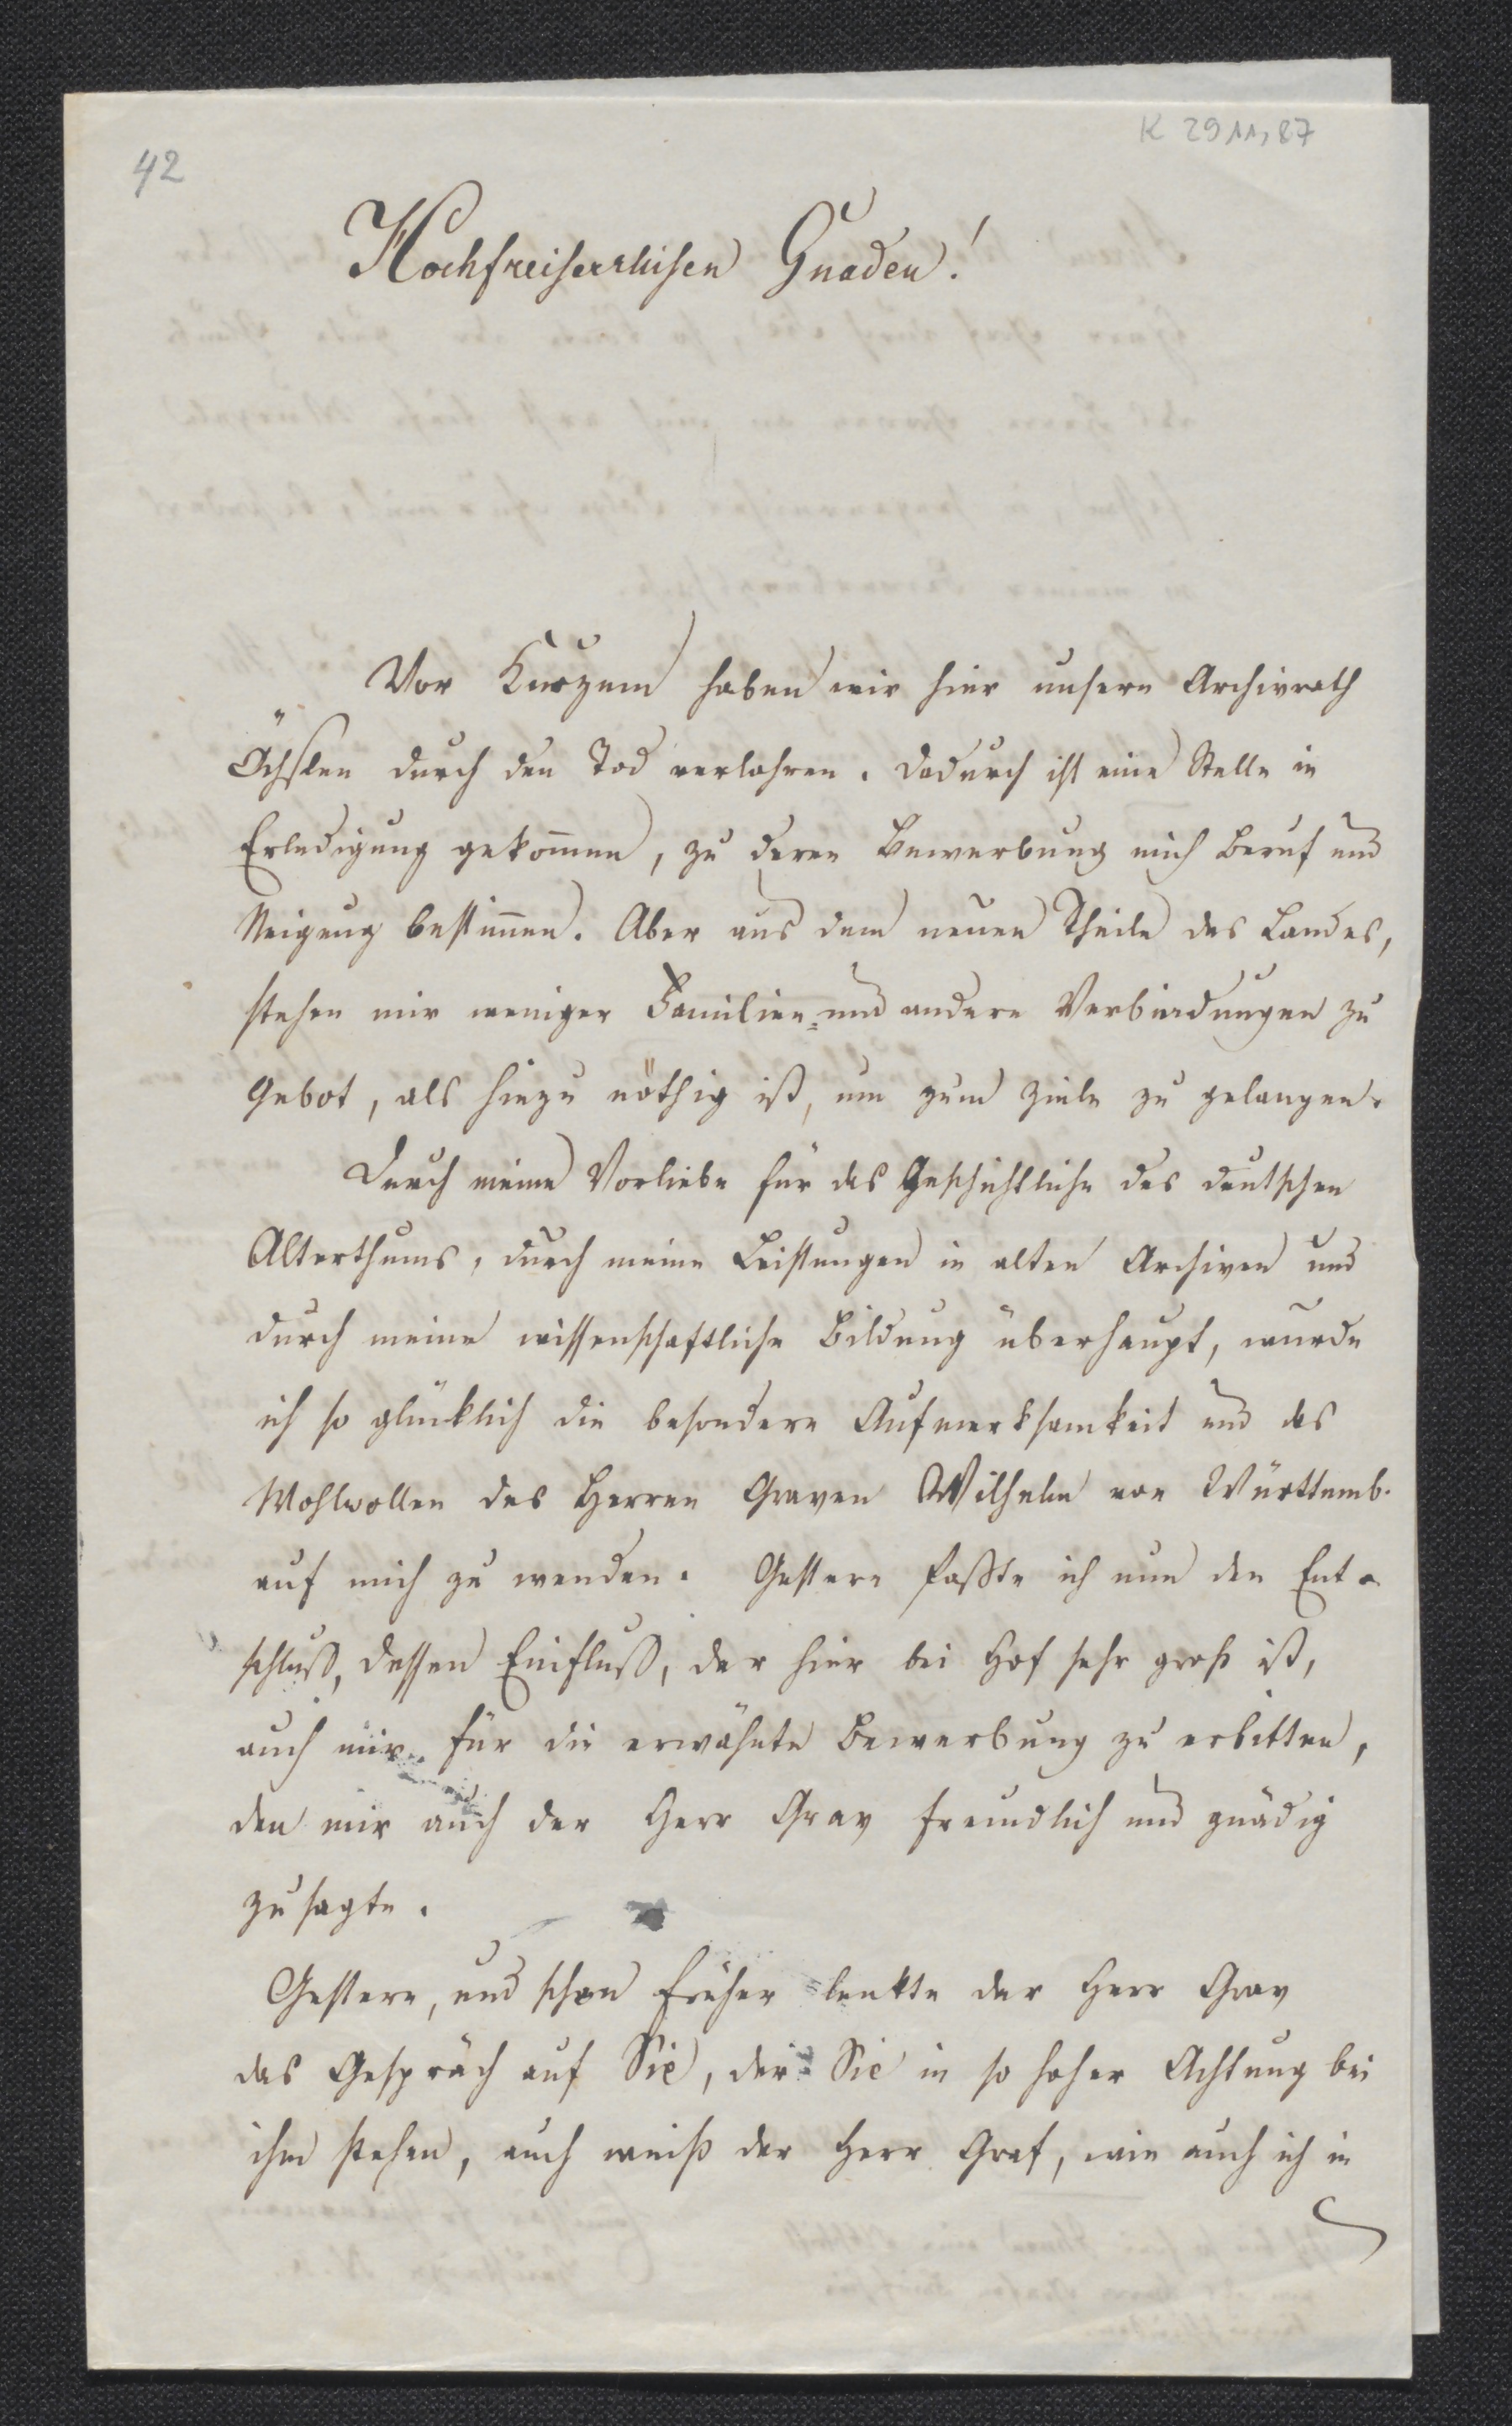 42
K 29 11, 87
Hochfreiherrlichen Gnaden!
Vor Kurzem haben wir hier unsern Archivrath
Öchslen durch den Tod verlohren. Dadurch ist eine Stelle in
Erledigung gekom̄en, zu deren Bewerbung mich Beruf und
Neigung bestim̄en. Aber aus dem neuen Theile des Landes,
stehen mir weniger Familien= und andere Verbindungen zu
Gebot, als hiezu nöthig ist, um zum Ziele zu gelangen.
Durch meine Vorliebe für das Geschichtliche des deutschen
Alterthums, durch meine Leistungen in alten Archiven und
durch meine wissenschaftliche Bildung überhaupt, wurde
ich so glücklich die besondere Aufmerksamkeit und das
Wohlwollen des Herren Graven Wilhelm von Württemb.
auf mich zu wenden. Gestern faßte ich nun den Ent-
schluß, dessen Einfluß, der hier bei Hof sehr groß ist,
auch mir für die erwähnte Bewerbung zu erbitten,
den mir auch der Herr Grav freundlich und gnädig
zusagte.
Gestern, und schon früher lenkte der Herr Grav
das Gespräch auf Sie, der Sie in so hoher Achtung bei
ihm stehen, auch weiß der Herr Graf, wie auch ich in